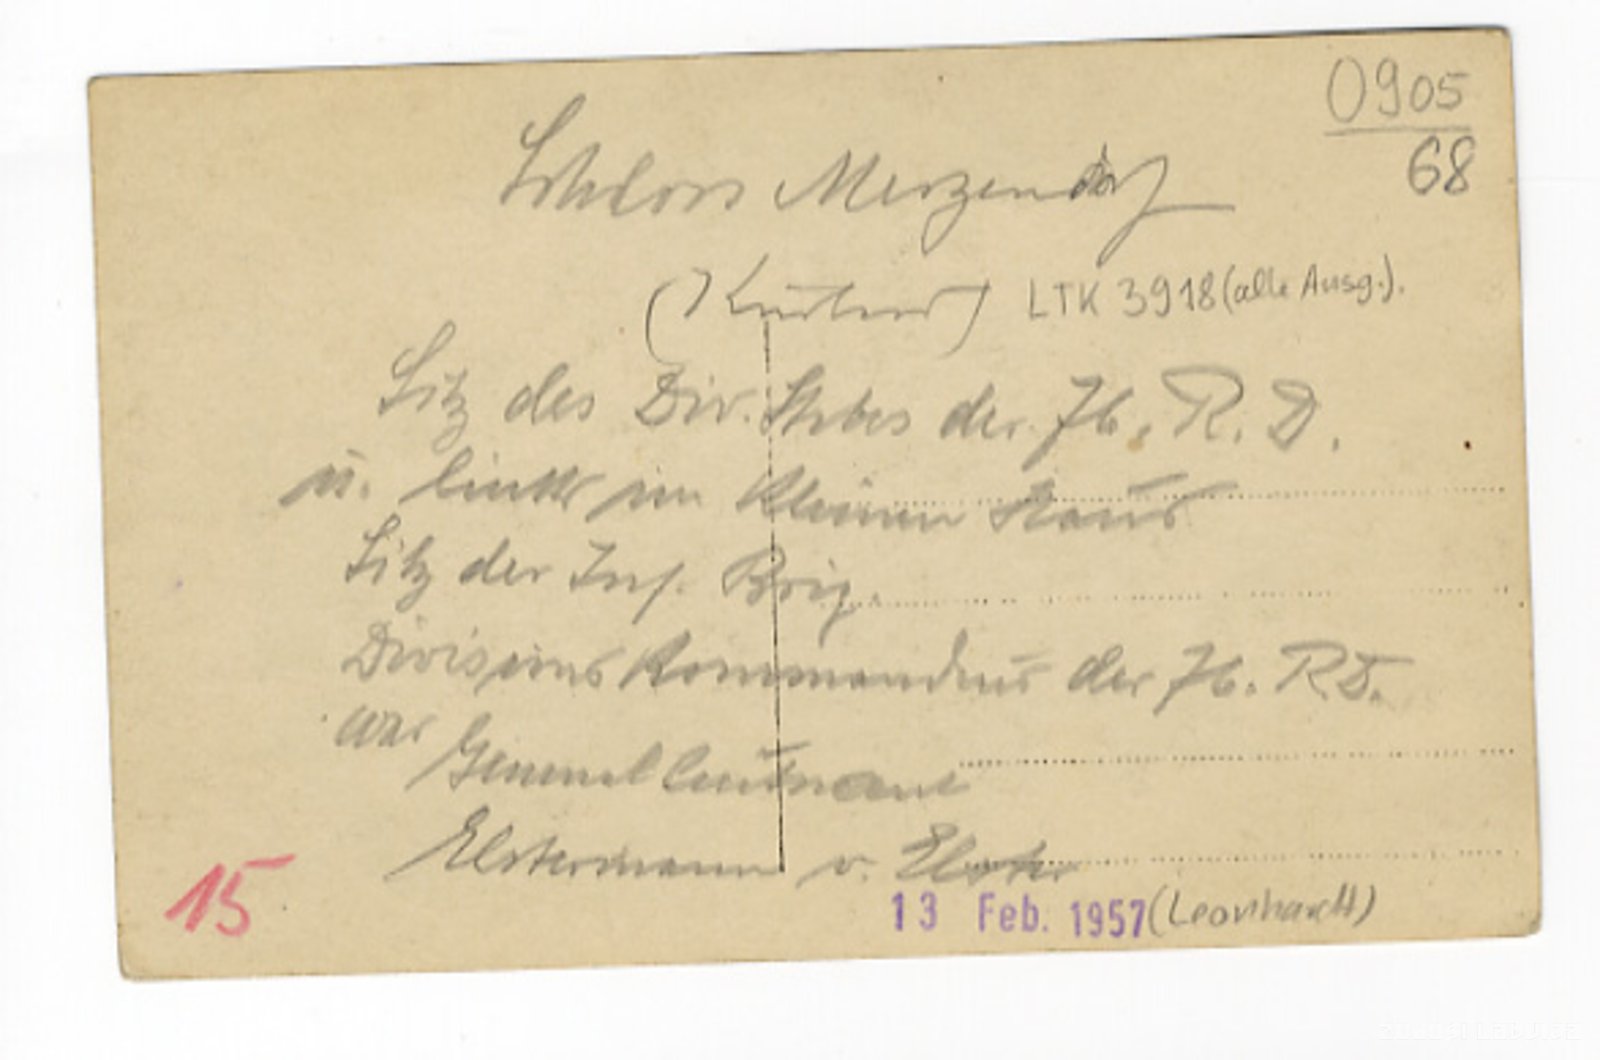 0905
68
Schloss Merzendorf
(Kurland) LTK 3918 (alle Ausg.).
Sitz des Div. Stabes der 76. R. D.
u. links im kleinen Haus
Sitz der Inf. Brig.
Divisions Kommandeur der 76. R.D.
war Generalleutnant
Elstermann v. Elster
15
13 Feb. 1957 (Leonhardt)